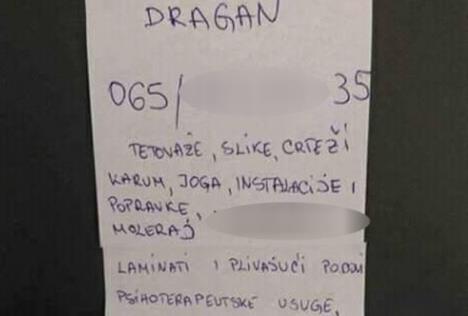 DRAGAN
065/ 35
TETOVAŽE, SLIKE, CRTEŽI
KARUM, JOGA, INSTALACIJE I
POPRAVKE,
MOLERAJ
LAMINATI I PLIVAŠUĆI PODOVI
PSIHOTERAPEUTSKE USUGE,